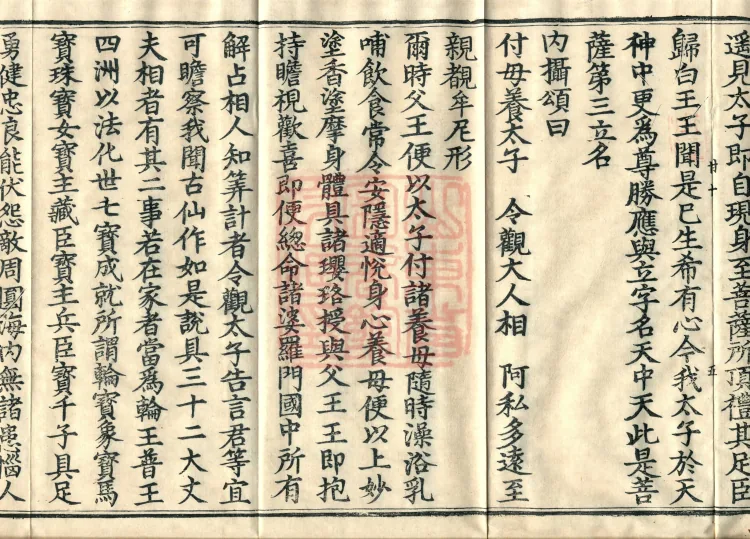 遥見太子即自現身至菩薩所頂禮其足臣
歸白王王聞是已生希有心今我太子於天
神中更為尊勝應與立字名天中天此是菩
薩第三立名
内攝頌曰
付母養太子 令觀大人相 阿私多遠至
親覩牟尼形
爾時父王便以太子付諸養母隨時澡浴乳
哺飲食常令安隱適悅身心養母便以上妙
塗香塗摩身體具諸瓔珞授與父王王即抱
持瞻視歡喜即便總命諸婆羅門國中所有
解占相人知筭計者令觀太子告言君等宜
可瞻察我聞古仙作如是說具三十二大丈
夫相者有其二事若在家者當為輪王普王
四洲以法化世七寶成就所謂輪寶象寶馬
寶珠寶女寶主藏臣寶主兵臣寶千子具足
勇健忠良能伏怨敵周圓海内無諸患惱人